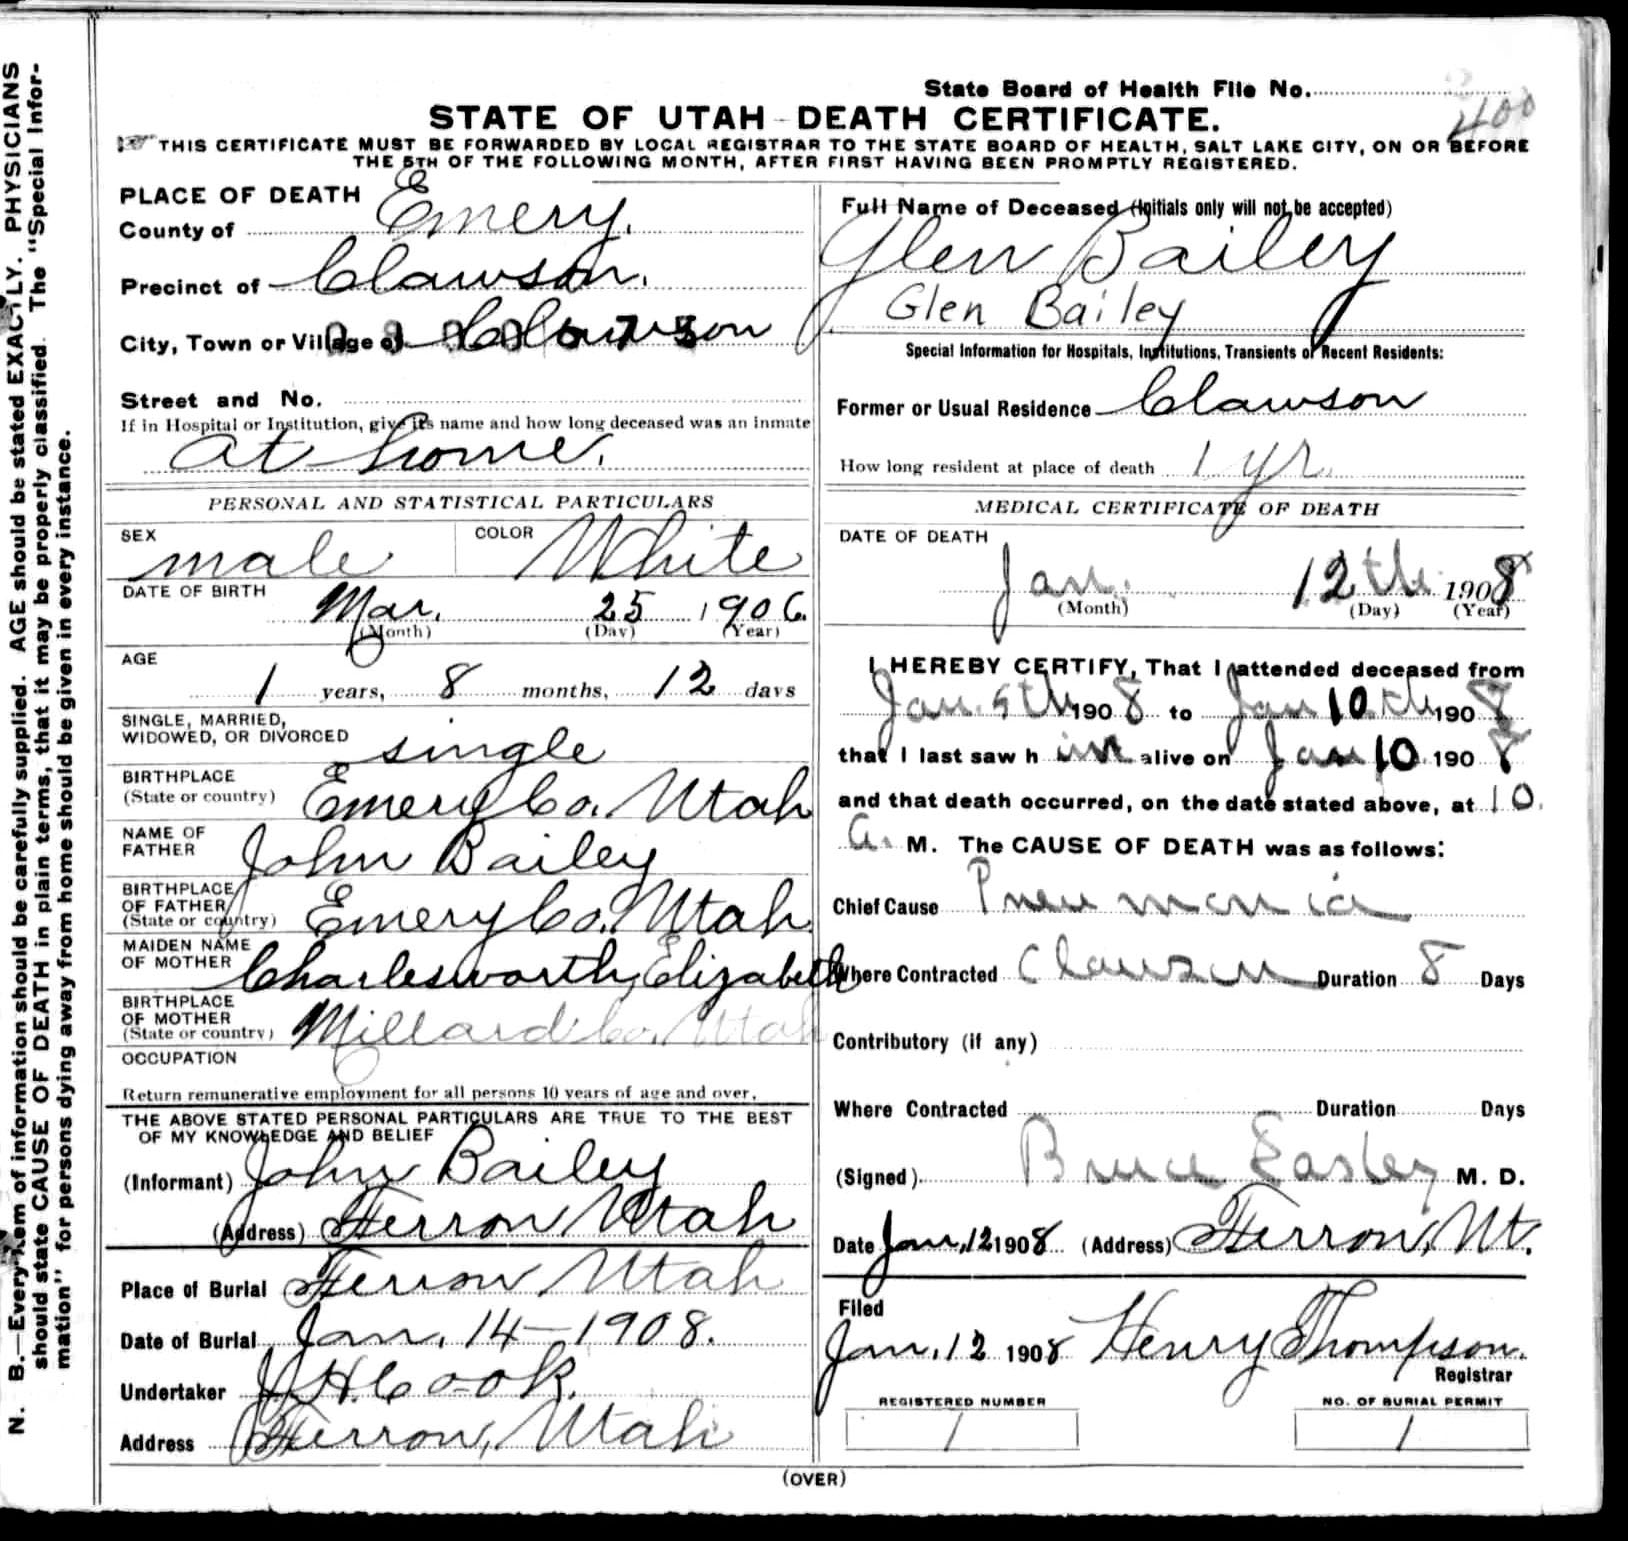 N. B.—Every item of information should be carefully supplied. AGE should be stated EXACTLY. PHYSICIANS
should state CAUSE OF DEATH in plain terms, that it may be properly classified. The "Special Infor-
mation" for persons dying away from home should be given in every instance.
State Board of Health File No.
400
STATE OF UTAH - DEATH CERTIFICATE.
THIS CERTIFICATE MUST BE FORWARDED BY LOCAL REGISTRAR TO THE STATE BOARD OF HEALTH, SALT LAKE CITY, ON OR BEFORE
THE 5TH OF THE FOLLOWING MONTH, AFTER FIRST HAVING BEEN PROMPTLY REGISTERED.
PLACE OF DEATH
County of Emery.
Precinct of Clawson.
City, Town or Village of Clawson
Street and No.
If in Hospital or Institution, give its name and how long deceased was an inmate
at home.
PERSONAL AND STATISTICAL PARTICULARS
SEX male COLOR White
DATE OF BIRTH
Mar. 25 1906.
(Month) (Day) (Year)
AGE
1 years, 8 months, 12 days
SINGLE, MARRIED,
WIDOWED, OR DIVORCED single
BIRTHPLACE
(State or country) Emery Co. Utah
NAME OF
FATHER John Bailey
BIRTHPLACE
OF FATHER
(State or country) Emery Co. Utah
MAIDEN NAME
OF MOTHER Charlesworth, Elizabeth
BIRTHPLACE
OF MOTHER
(State or country) Millard Co. Utah
OCCUPATION
Return remunerative employment for all persons 10 years of age and over.
THE ABOVE STATED PERSONAL PARTICULARS ARE TRUE TO THE BEST
OF MY KNOWLEDGE AND BELIEF
(Informant) John Bailey
(Address) Ferron Utah
Place of Burial Ferron Utah
Date of Burial Jan. 14 - 1908.
Undertaker J. H. Cook.
Address Ferron, Utah
Full Name of Deceased (Initials only will not be accepted)
Glen Bailey
Glen Bailey
Special Information for Hospitals, Institutions, Transients or Recent Residents:
Former or Usual Residence Clawson
How long resident at place of death 1 yr.
MEDICAL CERTIFICATE OF DEATH
DATE OF DEATH
Jan. 12th 1908
(Month) (Day) (Year)
I HEREBY CERTIFY, That I attended deceased from
Jan. 5th 1908 to Jan 10th 1908
that I last saw him alive on Jan 10 1908
and that death occurred, on the date stated above, at 10.
a. M. The CAUSE OF DEATH was as follows:
Chief Cause Pneumonia
Where Contracted Clawson Duration 8 Days
Contributory (if any)
Where Contracted Duration Days
(Signed) Bruce Easley M. D.
Date Jan. 12 1908 (Address) Ferron, Ut.
Filed
Jan. 12 1908 Henry Thompson.
Registrar
REGISTERED NUMBER NO. OF BURIAL PERMIT
1 1
(OVER)